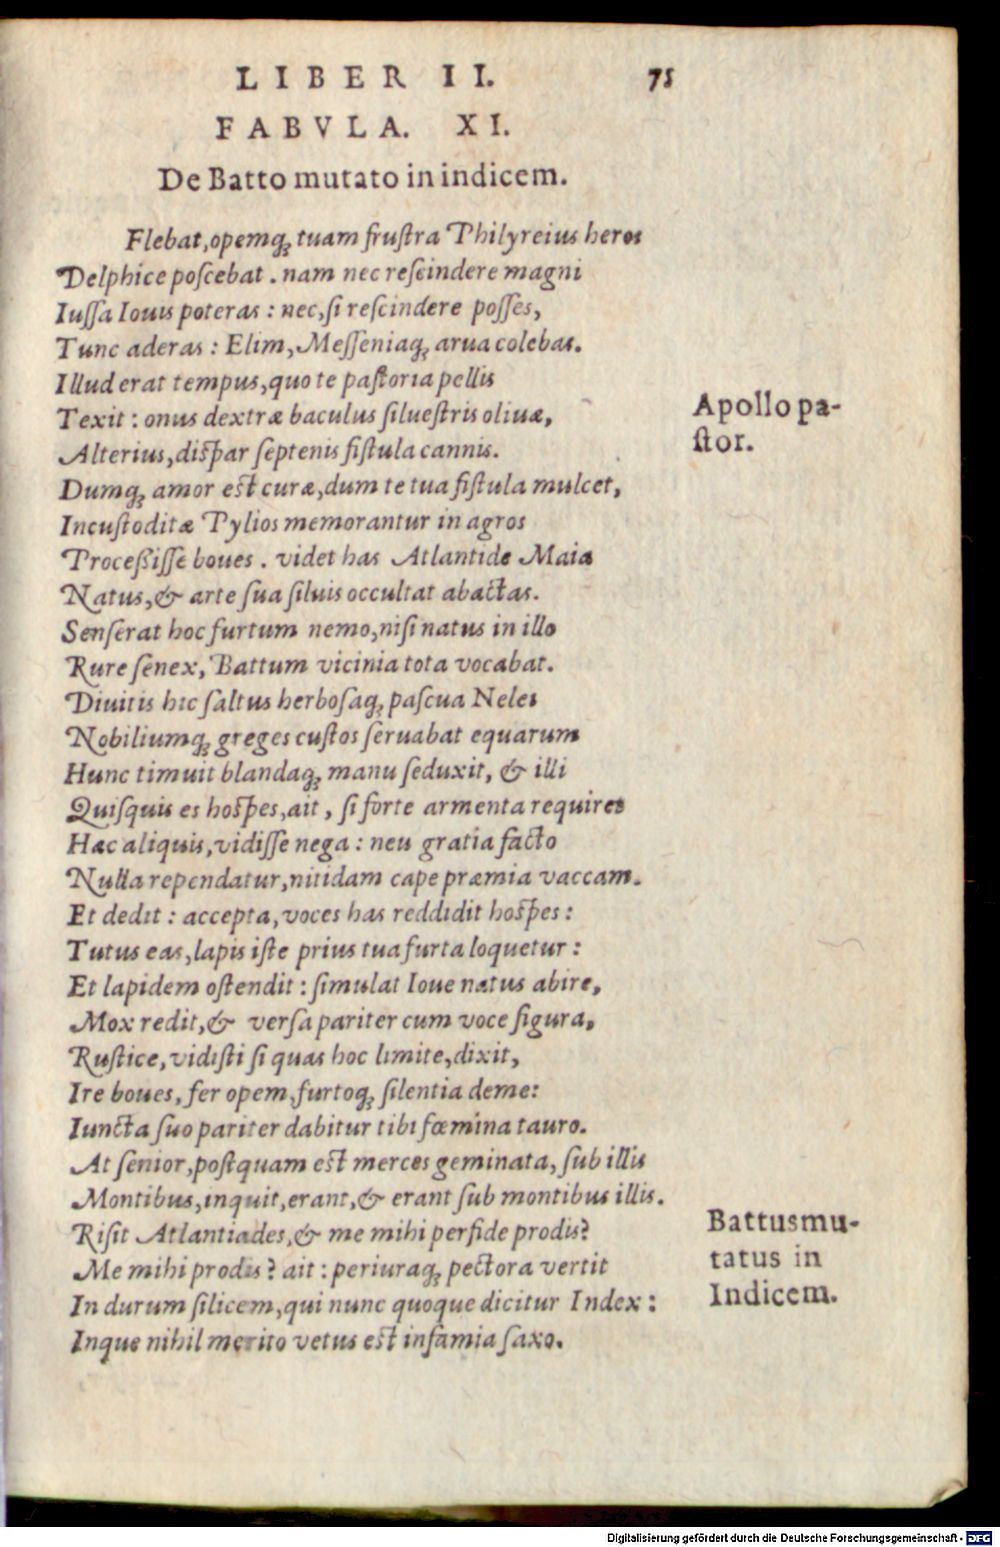 LIBER II. 75
FABVLA. XI.
De Batto mutato in indicem.
Flebat, opemq́; tuam frustra Philyreius heros
Delphice poscebat. nam nec rescindere magni
Iussa Iouis poteras: nec, si rescindere posses,
Tunc aderas: Elim, Messeniaq́; arua colebas.
Illud erat tempus, quo te pastoria pellis
Texit: onus dextræ baculus siluestris oliuæ,
Alterius, dispar septenis fistula cannis.
Dumq́; amor est curæ, dum te tua fistula mulcet,
Incustoditæ Pylios memorantur in agros
Processisse boues. videt has Atlantide Maia
Natus, & arte sua siluis occultat abactas.
Senserat hoc furtum nemo, nisi natus in illo
Rure senex, Battum vicinia tota vocabat.
Diuitis hic saltus herbosaq́; pascua Nelei
Nobiliumq́; greges custos seruabat equarum
Hunc timuit blandaq́; manu seduxit, & illi
Quisquis es hospes, ait, si forte armenta requiret
Hac aliquis, vidisse nega: neu gratia facto
Nulla rependatur, nitidam cape præmia vaccam.
Et dedit: accepta, voces has reddidit hospes:
Tutus eas, lapis iste prius tua furta loquetur:
Et lapidem ostendit: simulat Ioue natus abire,
Mox redit, & versa pariter cum voce figura,
Rustice, vidisti si quas hoc limite, dixit,
Ire boues, fer opem, furtoq́; silentia deme:
Iuncta suo pariter dabitur tibi fœmina tauro.
At senior, postquam est merces geminata, sub illis
Montibus, inquit, erant, & erant sub montibus illis.
Risit Atlantiades, & me mihi perfide prodis?
Me mihi prodis? ait: periuraq́; pectora vertit
In durum silicem, qui nunc quoque dicitur Index:
Inque nihil merito vetus est infamia saxo.
Apollo pa-
stor.
Battus mu-
tatus in
Indicem.
Digitalisierung gefördert durch die Deutsche Forschungsgemeinschaft - DFG